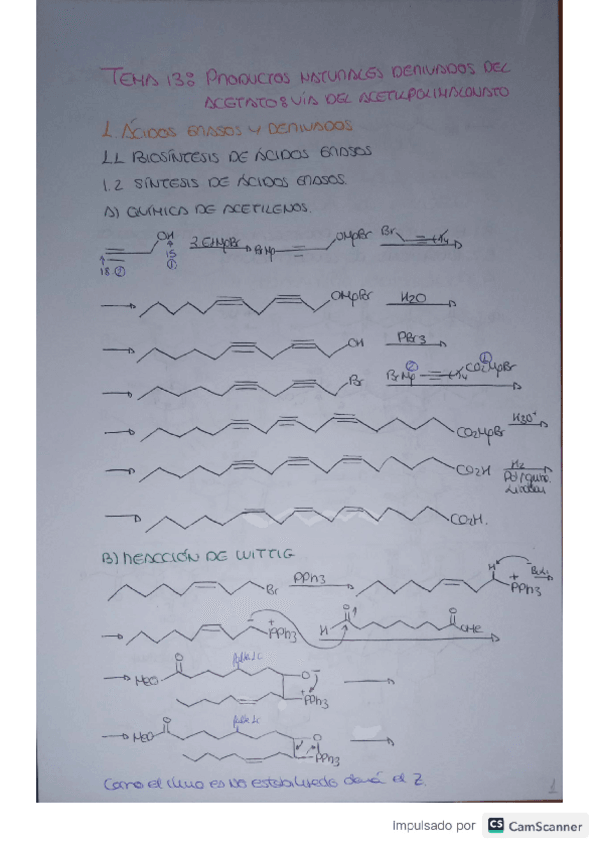 TEMA 13: PRODUCTOS NATURALES DERIVADOS DEL
ACETATO: VÍA DEL ACETILPOLIMALONATO
1. ÁCIDOS GRASOS Y DERIVADOS
1.1. BIOSÍNTESIS DE ÁCIDOS GRASOS
1.2 SÍNTESIS DE ÁCIDOS GRASOS.
A) QUÍMICA DE ACETILENOS.
OH 15 ① 18 ② 2 EtMgBr BrMg OMgBr Br
OMgBr H2O
OH PBr3
Br BrMg ② CO2MgBr ①
CO2MgBr H3O+
CO2H H2 Pd/ Lindlar
CO2H.
B) REACCIÓN DE WITTIG
Br PPh3 H + PPh3 BuLi
- + PPh3 H O O OMe
MeO O O- + PPh3
MeO O O PPh3
Como el iluro es no estabilizado dará el Z.
1
Impulsado por CS CamScanner